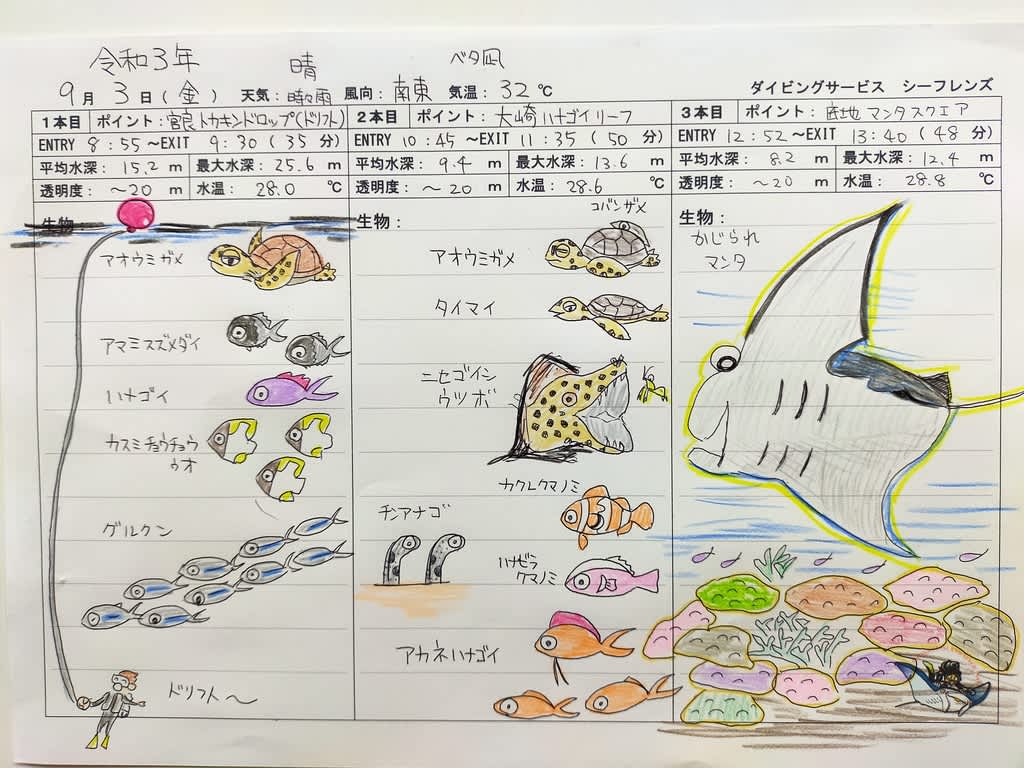 令和3年 晴 ベタ凪
9月 3日(金) 天気:時々雨 風向:南東 気温:32℃ ダイビングサービス シーフレンズ
1本目 ポイント:宮良トカキンドロップ(ドリフト)
ENTRY 8:55 ~EXIT 9:30 (35 分)
平均水深: 15.2 m 最大水深: 25.6 m
透明度: ~20 m 水温: 28.0 ℃
生物:
アオウミガメ
アマミスズメダイ
ハナゴイ
カスミチョウチョウ
ウオ
グルクン
ドリフト~
2本目 ポイント:大崎ハナゴイリーフ
ENTRY 10:45 ~EXIT 11:35 (50 分)
平均水深: 9.4 m 最大水深: 13.6 m
透明度: ~20 m 水温: 28.6 ℃
生物:
コバンザメ
アオウミガメ
タイマイ
ニセゴイシ
ウツボ
カクレクマノミ
チンアナゴ
ハナビラ
クマノミ
アカネハナゴイ
3本目 ポイント:底地マンタスクエア
ENTRY 12:52 ~EXIT 13:40 (48 分)
平均水深: 8.2 m 最大水深: 12.4 m
透明度: ~20 m 水温: 28.8 ℃
生物:
かじられ
マンタ